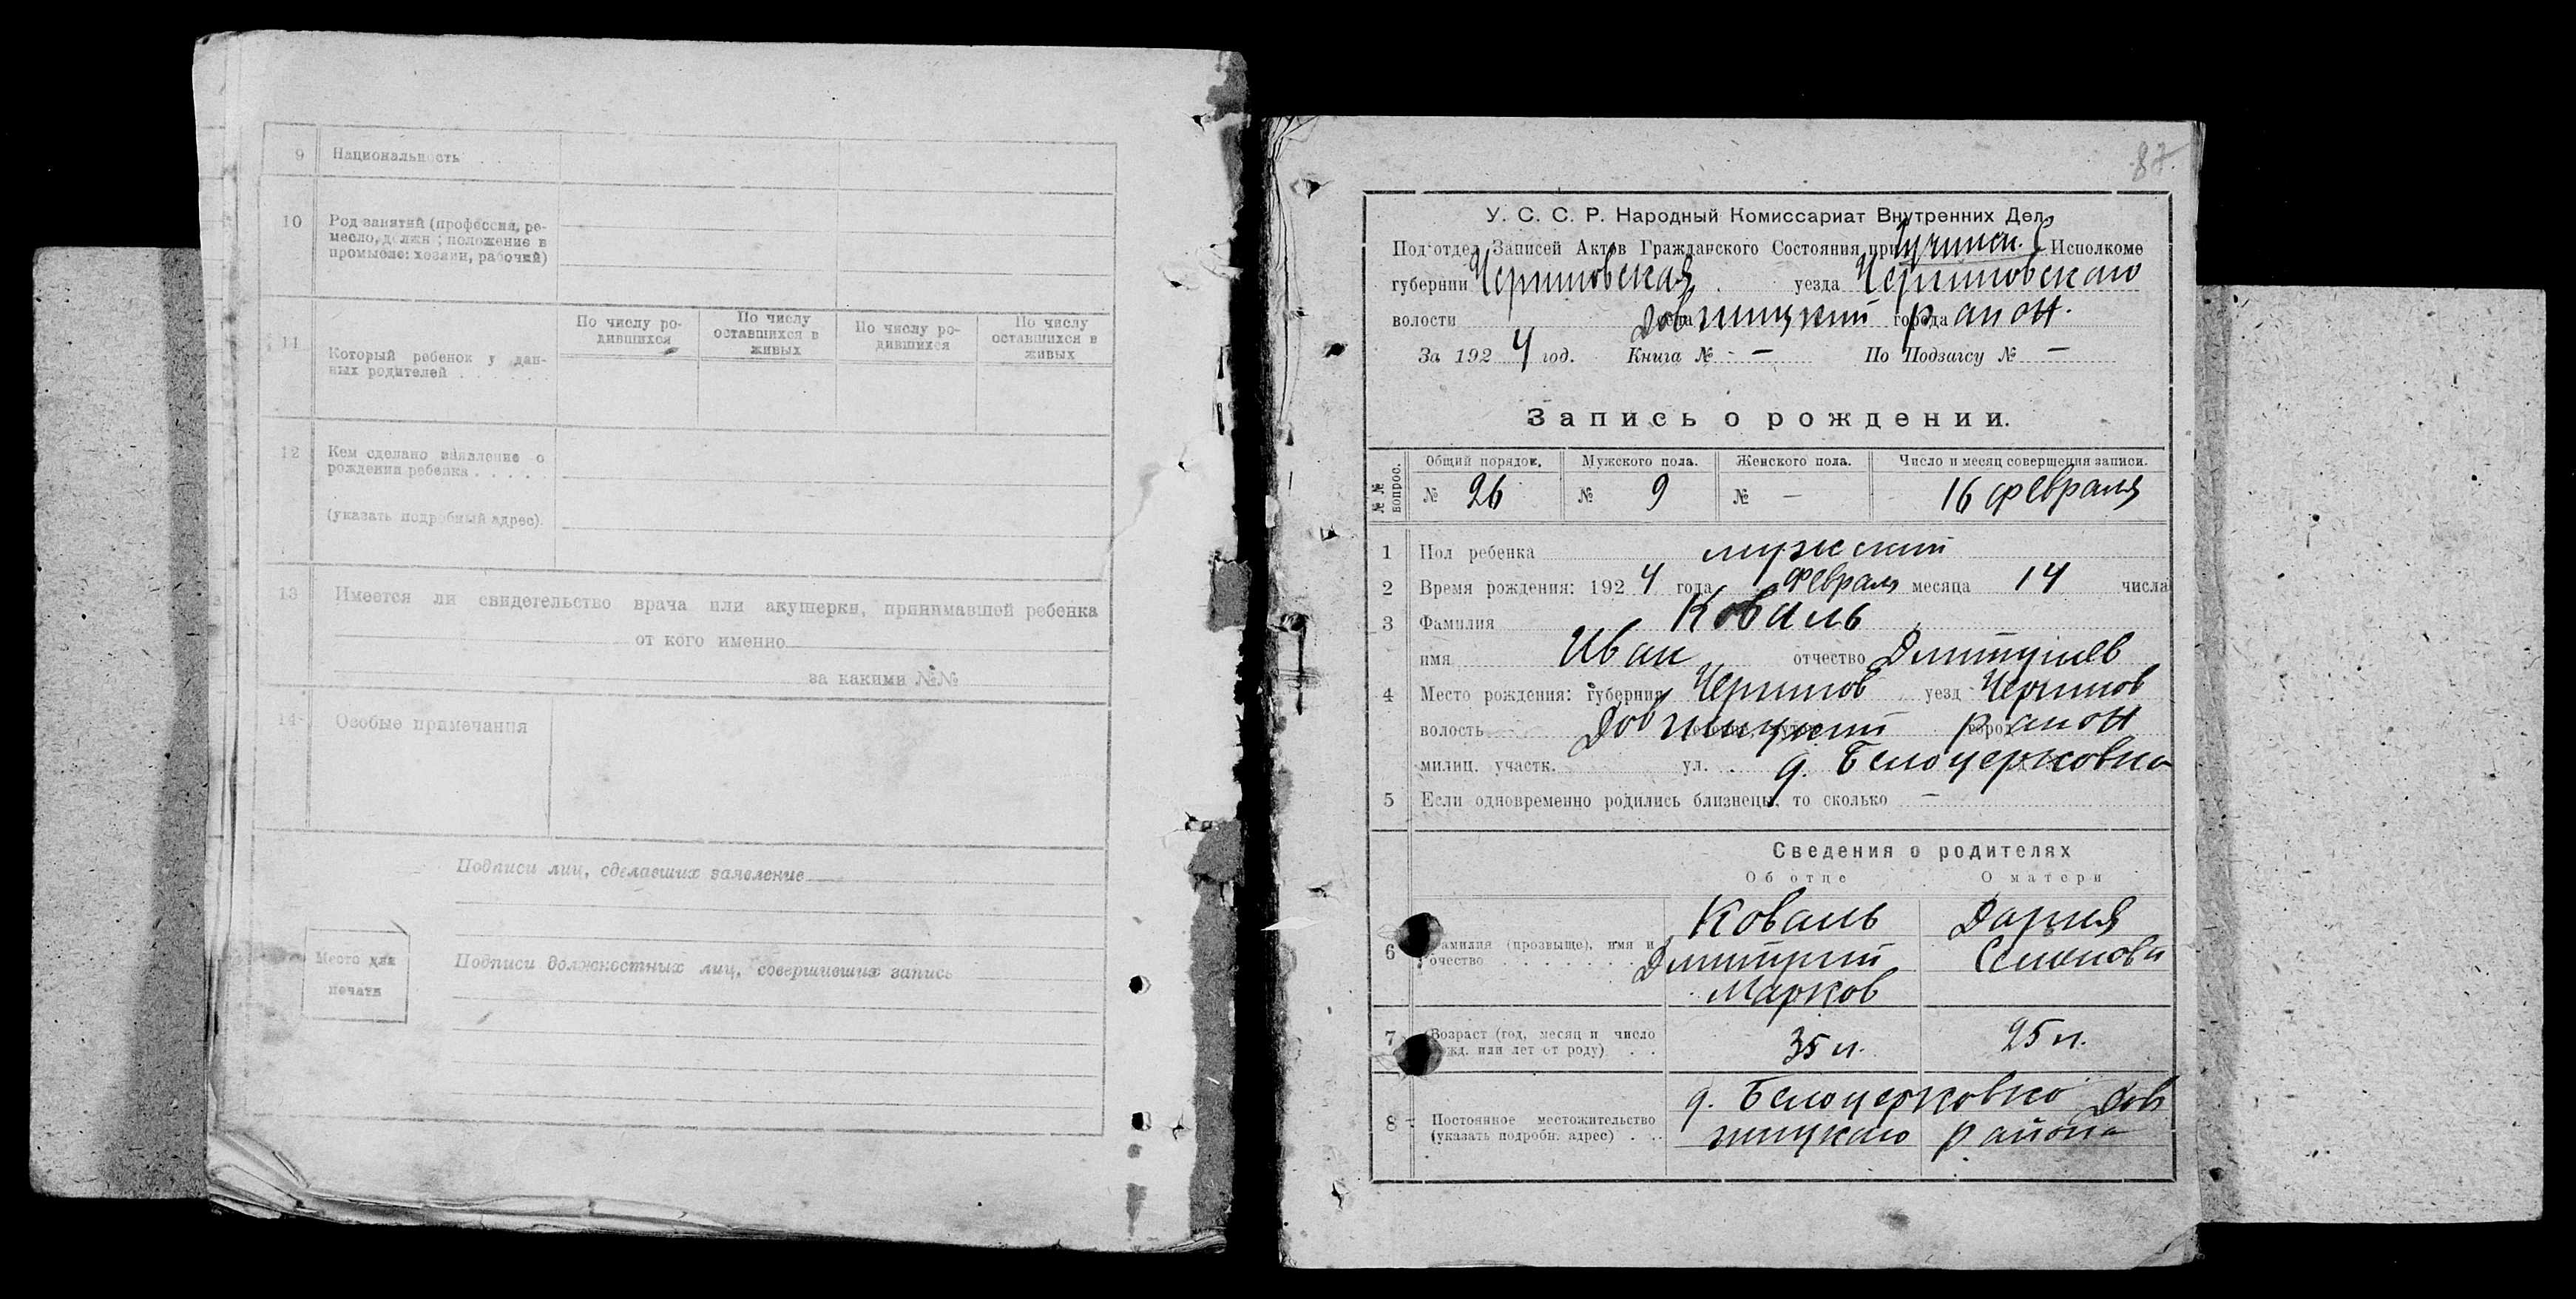 9 Национальность
10 Род занятий (профессия, ре-
месло, должн; положение в
промысле: хозяин, рабочий)
11 Который ребенок у дан-
ных родителей
По числу ро-
дившихся
По числу
оставшихся в
живых
По числу ро-
дившихся
По числу
оставшихся в
живых
12 Кем сделано заявление о
рождении ребенка . . . . .
(указать подробный адрес).
13 Имеется ли свидетельство врача или акушерки, принимавшей ребенка
от кого именно
за какими №№
14 Особые примечания
Подписи лиц, сделавших заявление
Место для
печати
Подписи должностных лиц, совершивших запись
87.
У. С. С. Р. Народный Комиссариат Внутренних Дел.
Под'отдел Записей Актов Гражданского Состояния при Исполкоме
губернии Черниговская уезда Черниговскаго
волости села Довжицкий города район.
За 1924 год. Книга № - По Подзагсу № -
Запись о рождении.
№№ вопрос.
Общий порядок. Мужского пола. Женского пола. Число и месяц совершения записи.
№ 26 № 9 № - 16 февраля
1 Пол ребенка мужский
2 Время рождения: 1924 года февраля месяца 14 числа
3 Фамилия Коваль
имя Иван отчество Дмитриев
4 Место рождения: губерния Чернигов уезд Чернигов
волость Довжицкий город район
милиц. участк. ул. д. Белоцерковка
5 Если одновременно родились близнецы, то сколько -
Сведения о родителях
Об отце О матери
6 Фамилия (прозвище), имя и
отчество
Коваль
Дмитрий
Марков
Дария
Семенова
7 Возраст (год, месяц и число
рожд. или лет от роду) . .
35 л. 25 л.
8 Постоянное местожительство
(указать подробн. адрес) . .
д. Белоцерковка Дов
жицкаго района